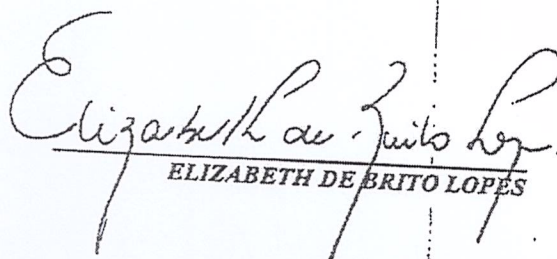 Elizabeth de Brito Lopes
ELIZABETH DE BRITO LOPES